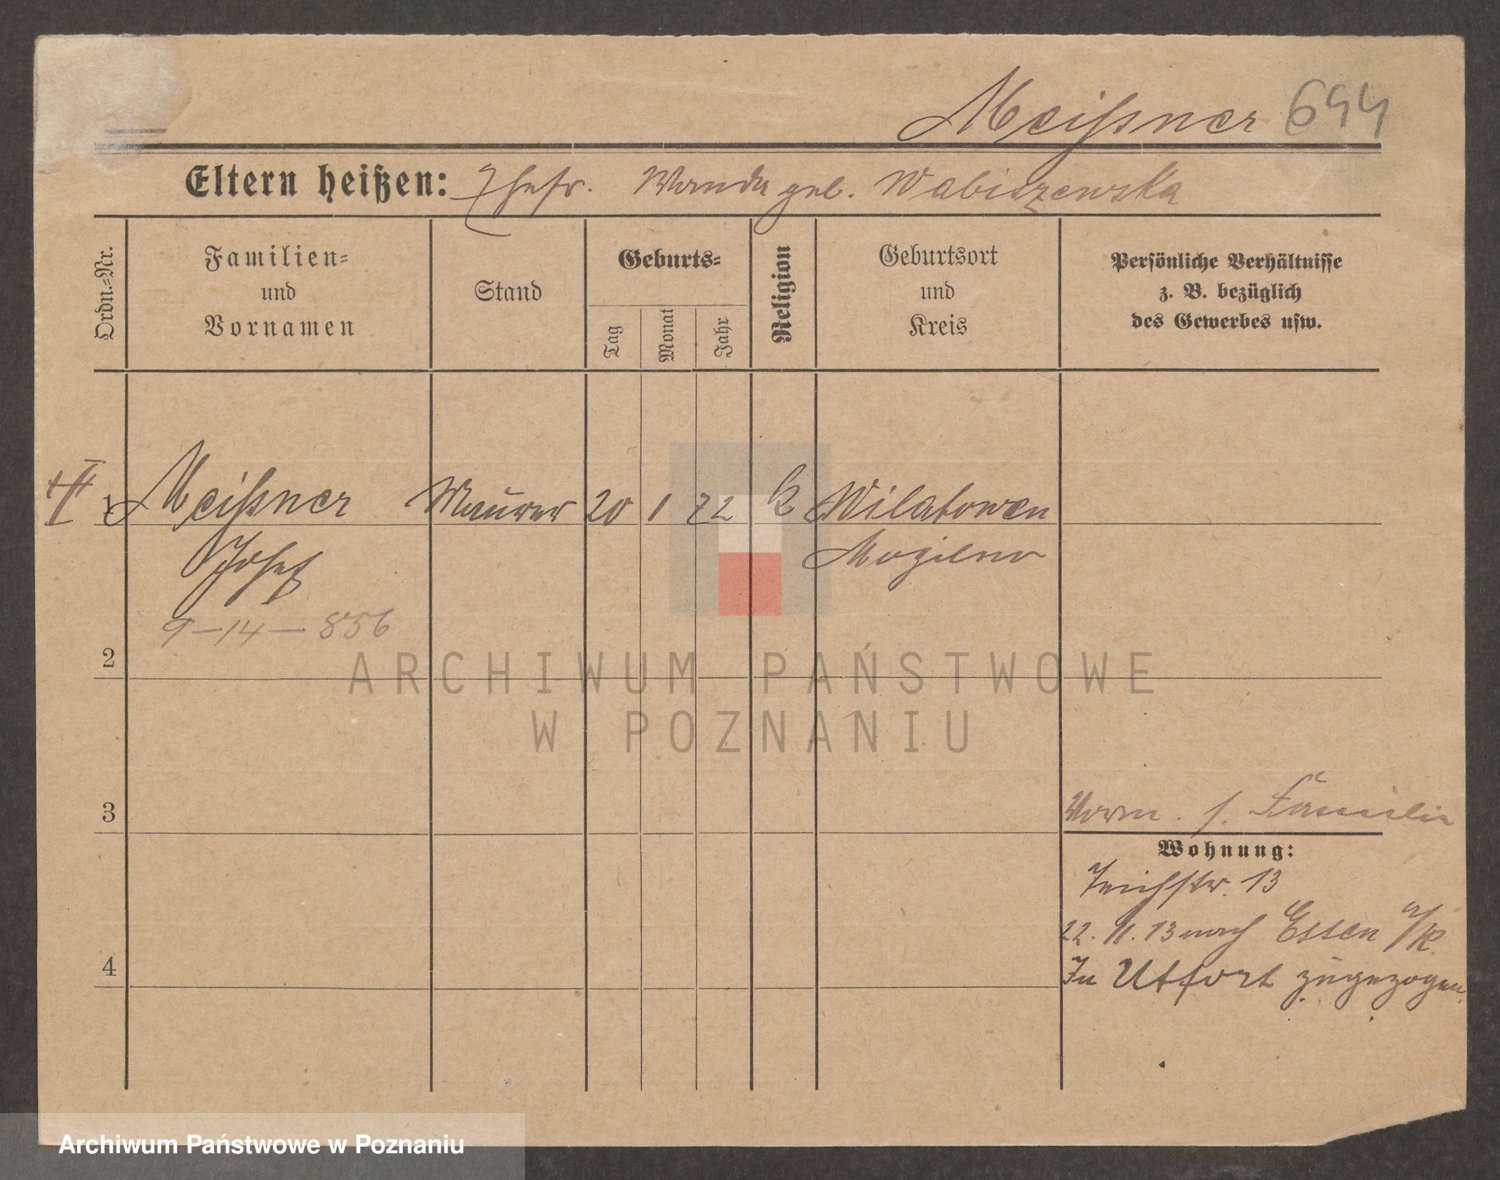 Meißner 644
Eltern heißen: Ehefr. Wanda geb. Wabiszewska
Ordn.-Nr.
Familien-
und
Vornamen
Stand
Geburts-
Tag
Monat
Jahr
Religion
Geburtsort
und
Kreis
Persönliche Verhältnisse
z. B. bezüglich
des Gewerbes usw.
1 Meißner Maurer 20 1 72 k Wilatowen
Josef Mogilno
9-14-856
2
3
Familie
Wohnung:
Teichstr. 13
22. 13 nach Essen a/R.
In Utfort zugezogen.
4
ARCHIWUM PAŃSTWOWE
W POZNANIU
Archiwum Państwowe w Poznaniu